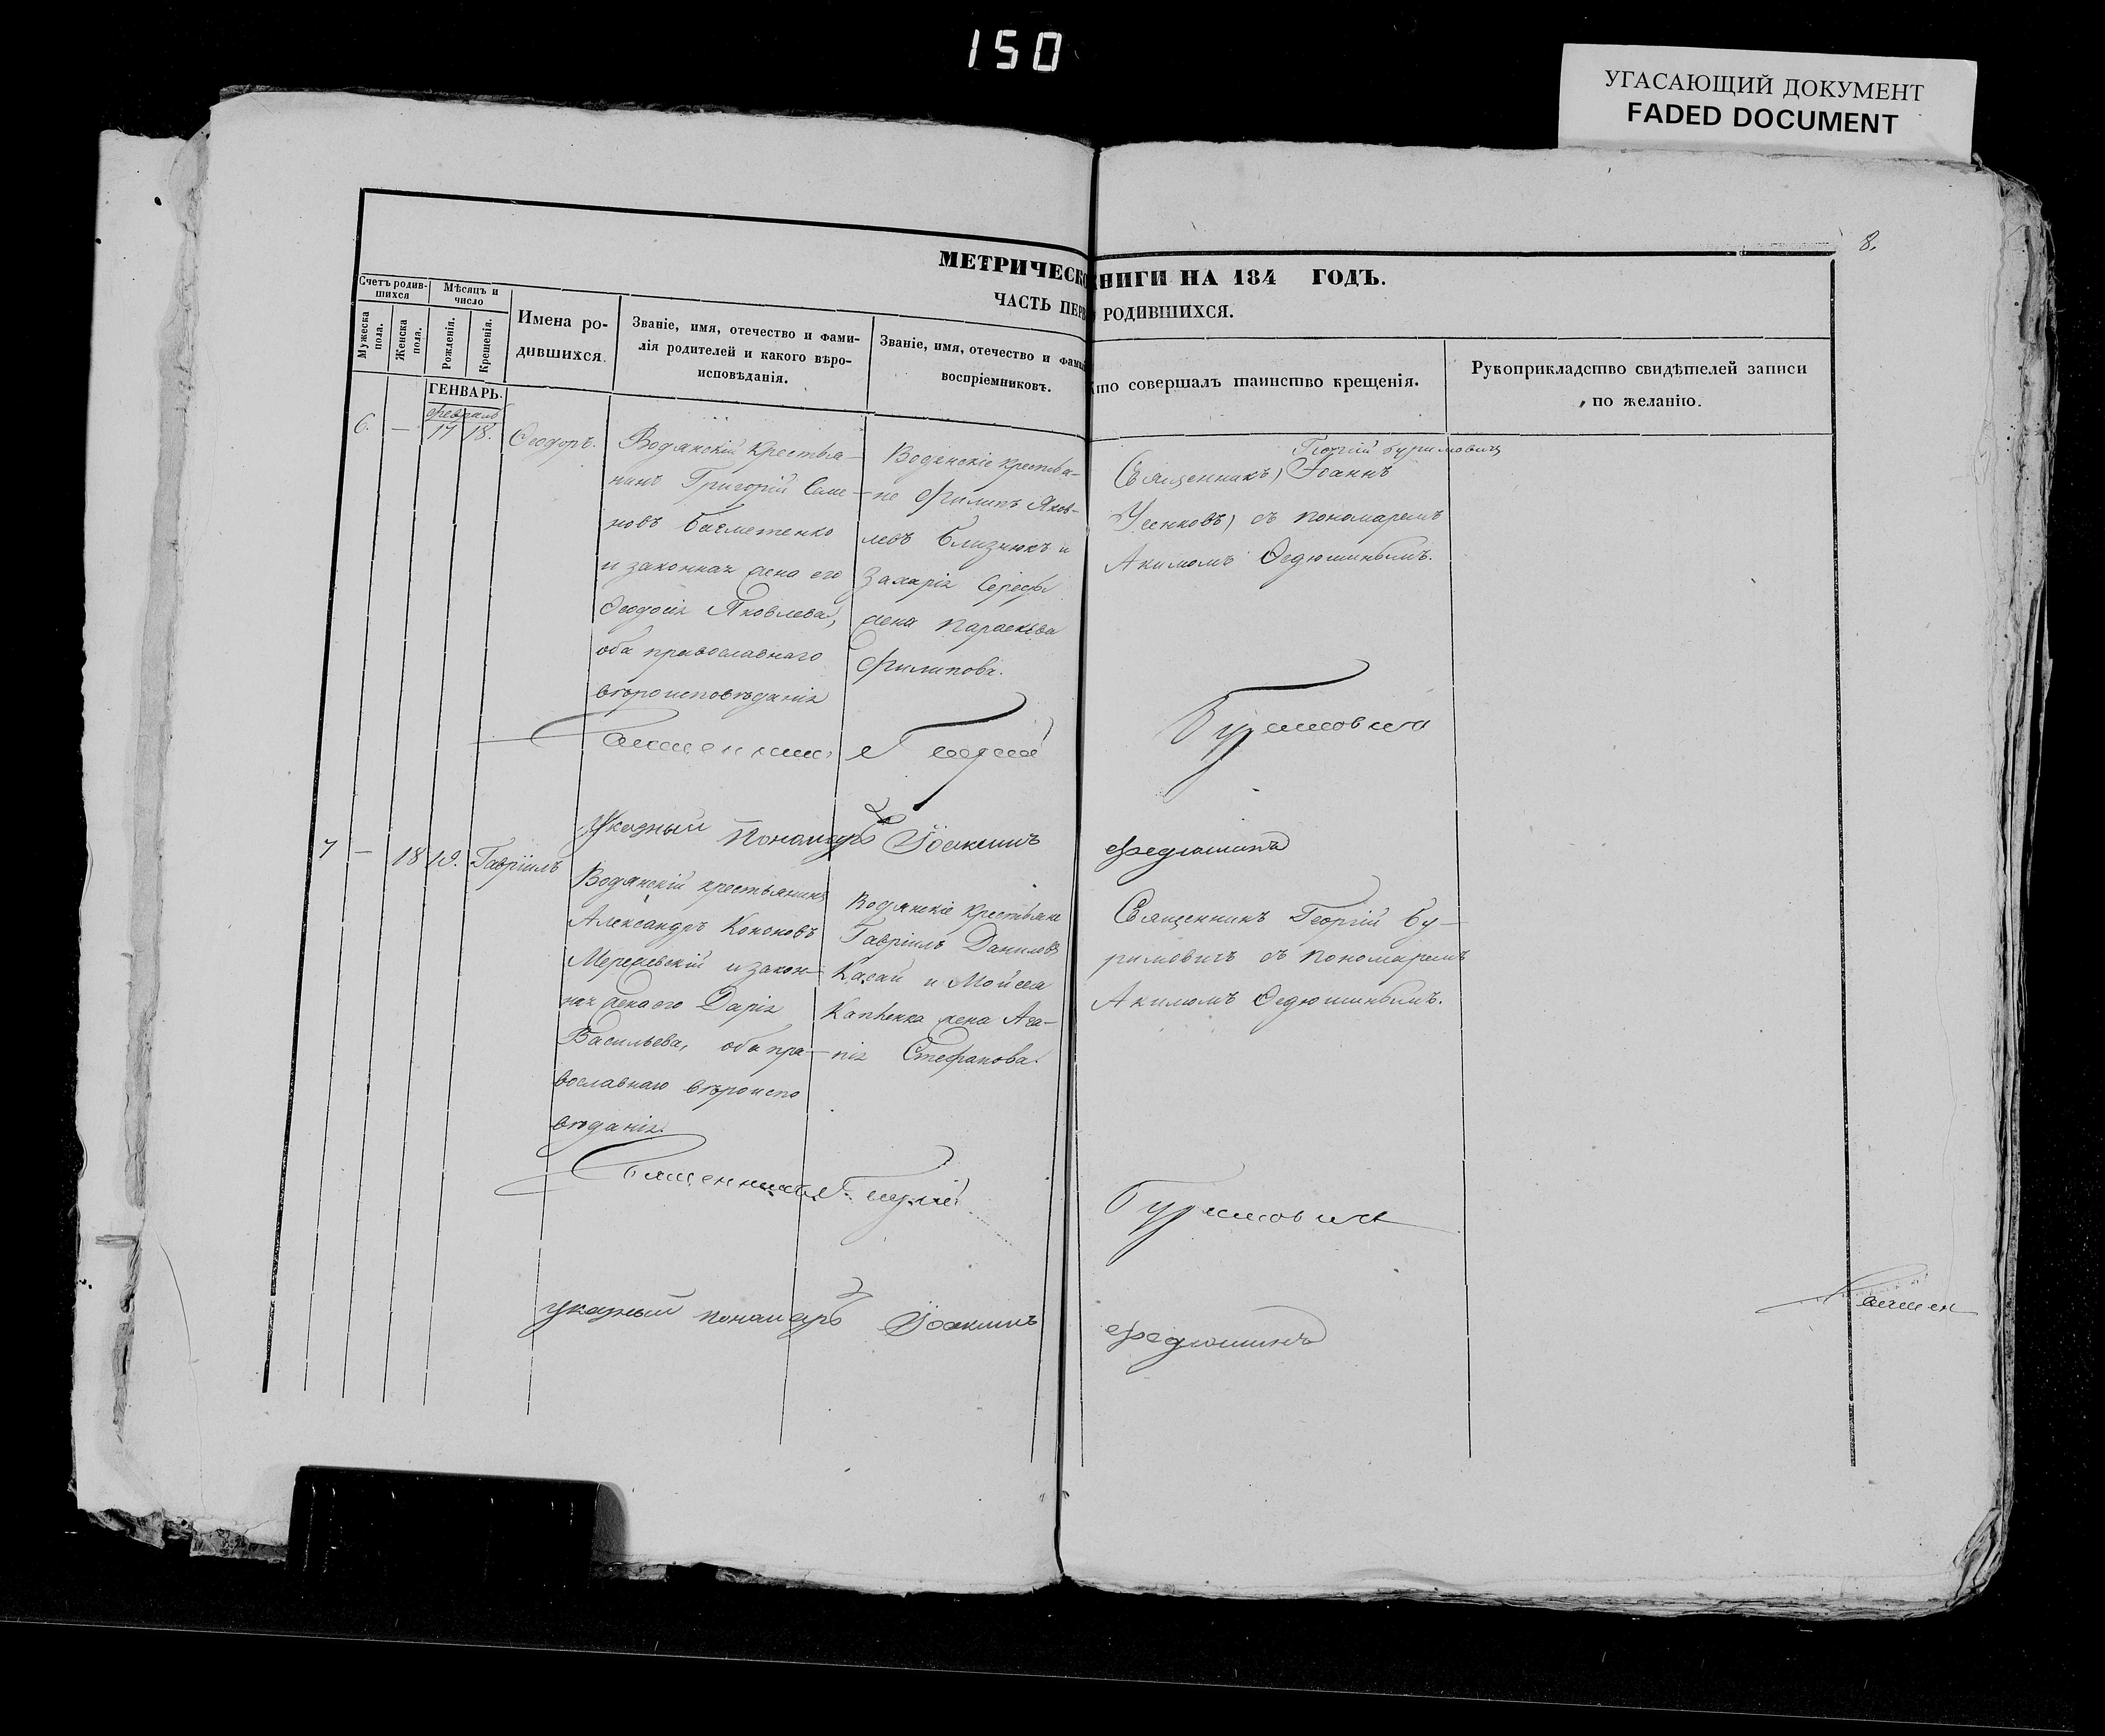 150
УГАСАЮЩИЙ ДОКУМЕНТ
FADED DOCUMENT
8.
МЕТРИЧЕСКО
НИГИ НА 184 ГОДЪ.
ЧАСТЬ ПЕРВ
РОДИВШИХСЯ.
Счетъ родив-
шихся
Мужеска
пола.
Женска
пола.
Мѣсяцъ и
число
Рожденія.
Крещенія.
Имена ро-
дившихся.
Званіе, имя, отечество и фами-
лія родителей и какого вѣро-
исповѣданія.
Званіе, имя, отечество и фами
воспріемниковъ.
то совершалъ таинство крещенія.
Рукоприкладство свидѣтелей записи
по желанію.
ГЕНВАРЬ.
февраль
6.
—
17
18.
Ѳеодоръ.
Водянскій крестья-
нинъ Григорій Семе-
новъ
и законная жена его
Ѳеодосія Яковлева,
оба православнаго
вѣроисповѣданія
Водянскіе крестья-
не Филипъ Яков-
левъ Близнюкъ и
Захарія
жена Параскева
Филипова.
Георгій Буримовичъ
Священникъ Іоаннъ
Усенковъ съ пономаремъ
Акимомъ Ѳедюшинымъ.
Священникъ Георгій Буримовичъ
Указный Пономарь Іоакимъ Федюшинъ
7
—
18
19.
Гавріилъ
Водянскій крестьянинъ
Александръ Кононовъ
Мережевскій и закон-
ная жена его Дарія
Васильева, оба пра-
вославнаго вѣроиспо
вѣданія.
Водянскіе крестьяне
Гавріилъ Даниловъ
Касай и Мойсея
жена Ага-
пія Стефанова.
Священникъ Георгій Бу-
римовичъ съ пономаремъ
Акимомъ Ѳедюшинымъ.
Священникъ Георгій Буримовичъ
Указный пономарь Іоакимъ Федюшинъ
Священ